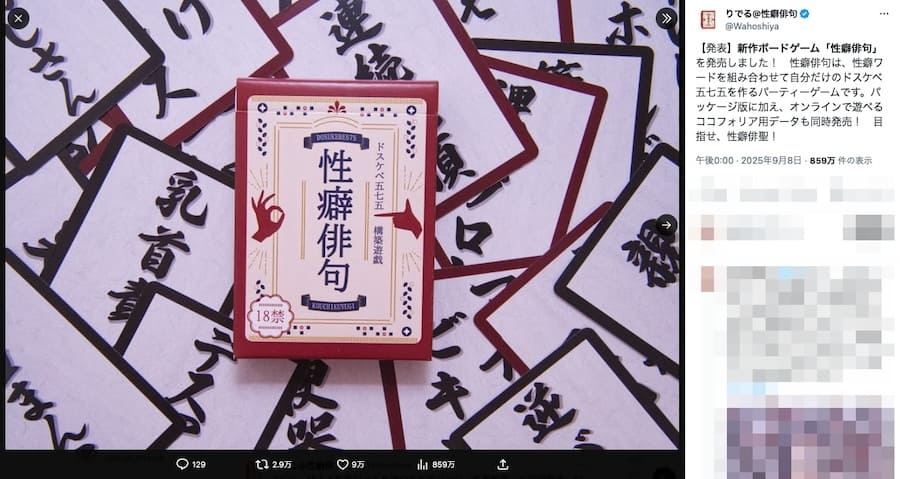 じさん
け
連続
乳首
まん
便器
逆
DOSUKEBE575
性癖俳句
ドスケベ五七五 構築遊戯
KOUCHIKUYUGI
18禁
129
2.9万
9万
859万
りでる@性癖俳句
@Wahoshiya
【発表】新作ボードゲーム「性癖俳句」
を発売しました！ 性癖俳句は、性癖ワ
ードを組み合わせて自分だけのドスケベ
五七五を作るパーティーゲームです。パ
ッケージ版に加え、オンラインで遊べる
ココフォリア用データも同時発売！ 目
指せ、性癖俳聖！
午後0:00 · 2025年9月8日 · 859万 件の表示